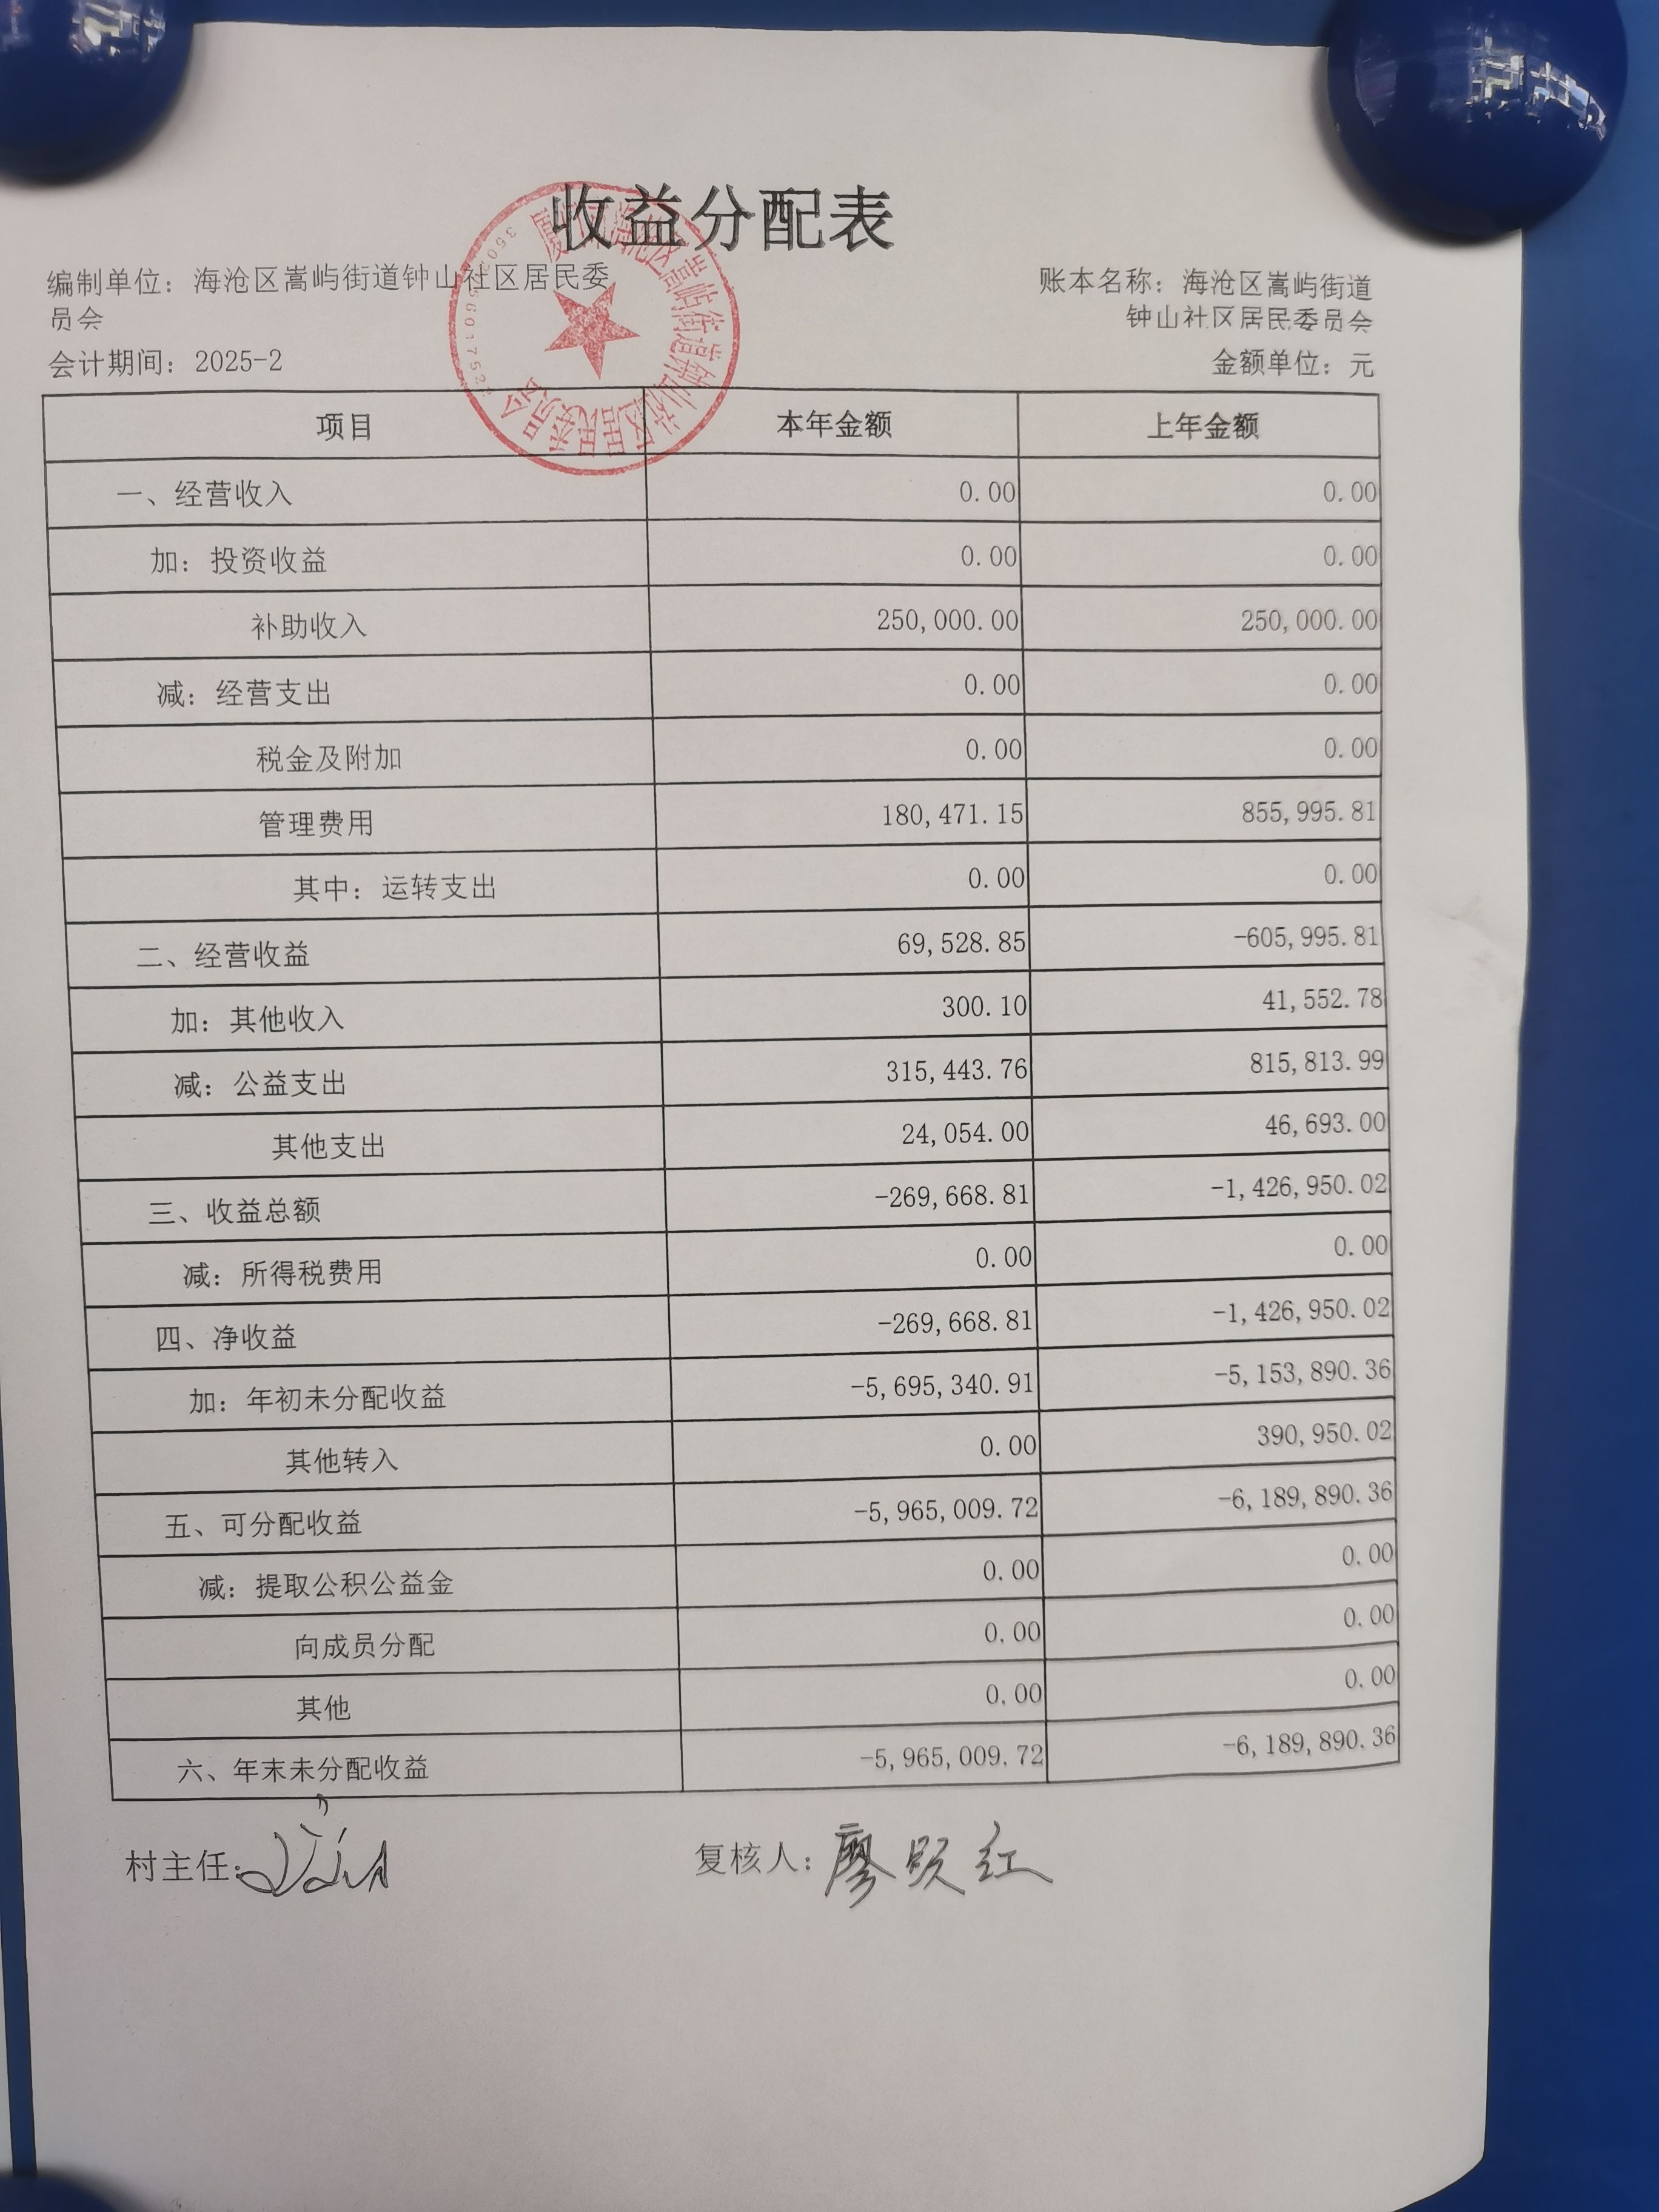 收益分配表
编制单位：海沧区嵩屿街道钟山社区居民委
员会
账本名称：海沧区嵩屿街道
钟山社区居民委员会
会计期间：2025-2
金额单位：元
厦门市海沧区嵩屿街道钟山社区居民委员会
项目 本年金额 上年金额
一、经营收入 0.00 0.00
加：投资收益 0.00 0.00
补助收入 250,000.00 250,000.00
减：经营支出 0.00 0.00
税金及附加 0.00 0.00
管理费用 180,471.15 855,995.81
其中：运转支出 0.00 0.00
二、经营收益 69,528.85 -605,995.81
加：其他收入 300.10 41,552.78
减：公益支出 315,443.76 815,813.99
其他支出 24,054.00 46,693.00
三、收益总额 -269,668.81 -1,426,950.02
减：所得税费用 0.00 0.00
四、净收益 -269,668.81 -1,426,950.02
加：年初未分配收益 -5,695,340.91 -5,153,890.36
其他转入 0.00 390,950.02
五、可分配收益 -5,965,009.72 -6,189,890.36
减：提取公积公益金 0.00 0.00
向成员分配 0.00 0.00
其他 0.00 0.00
六、年末未分配收益 -5,965,009.72 -6,189,890.36
村主任：
复核人：廖 红